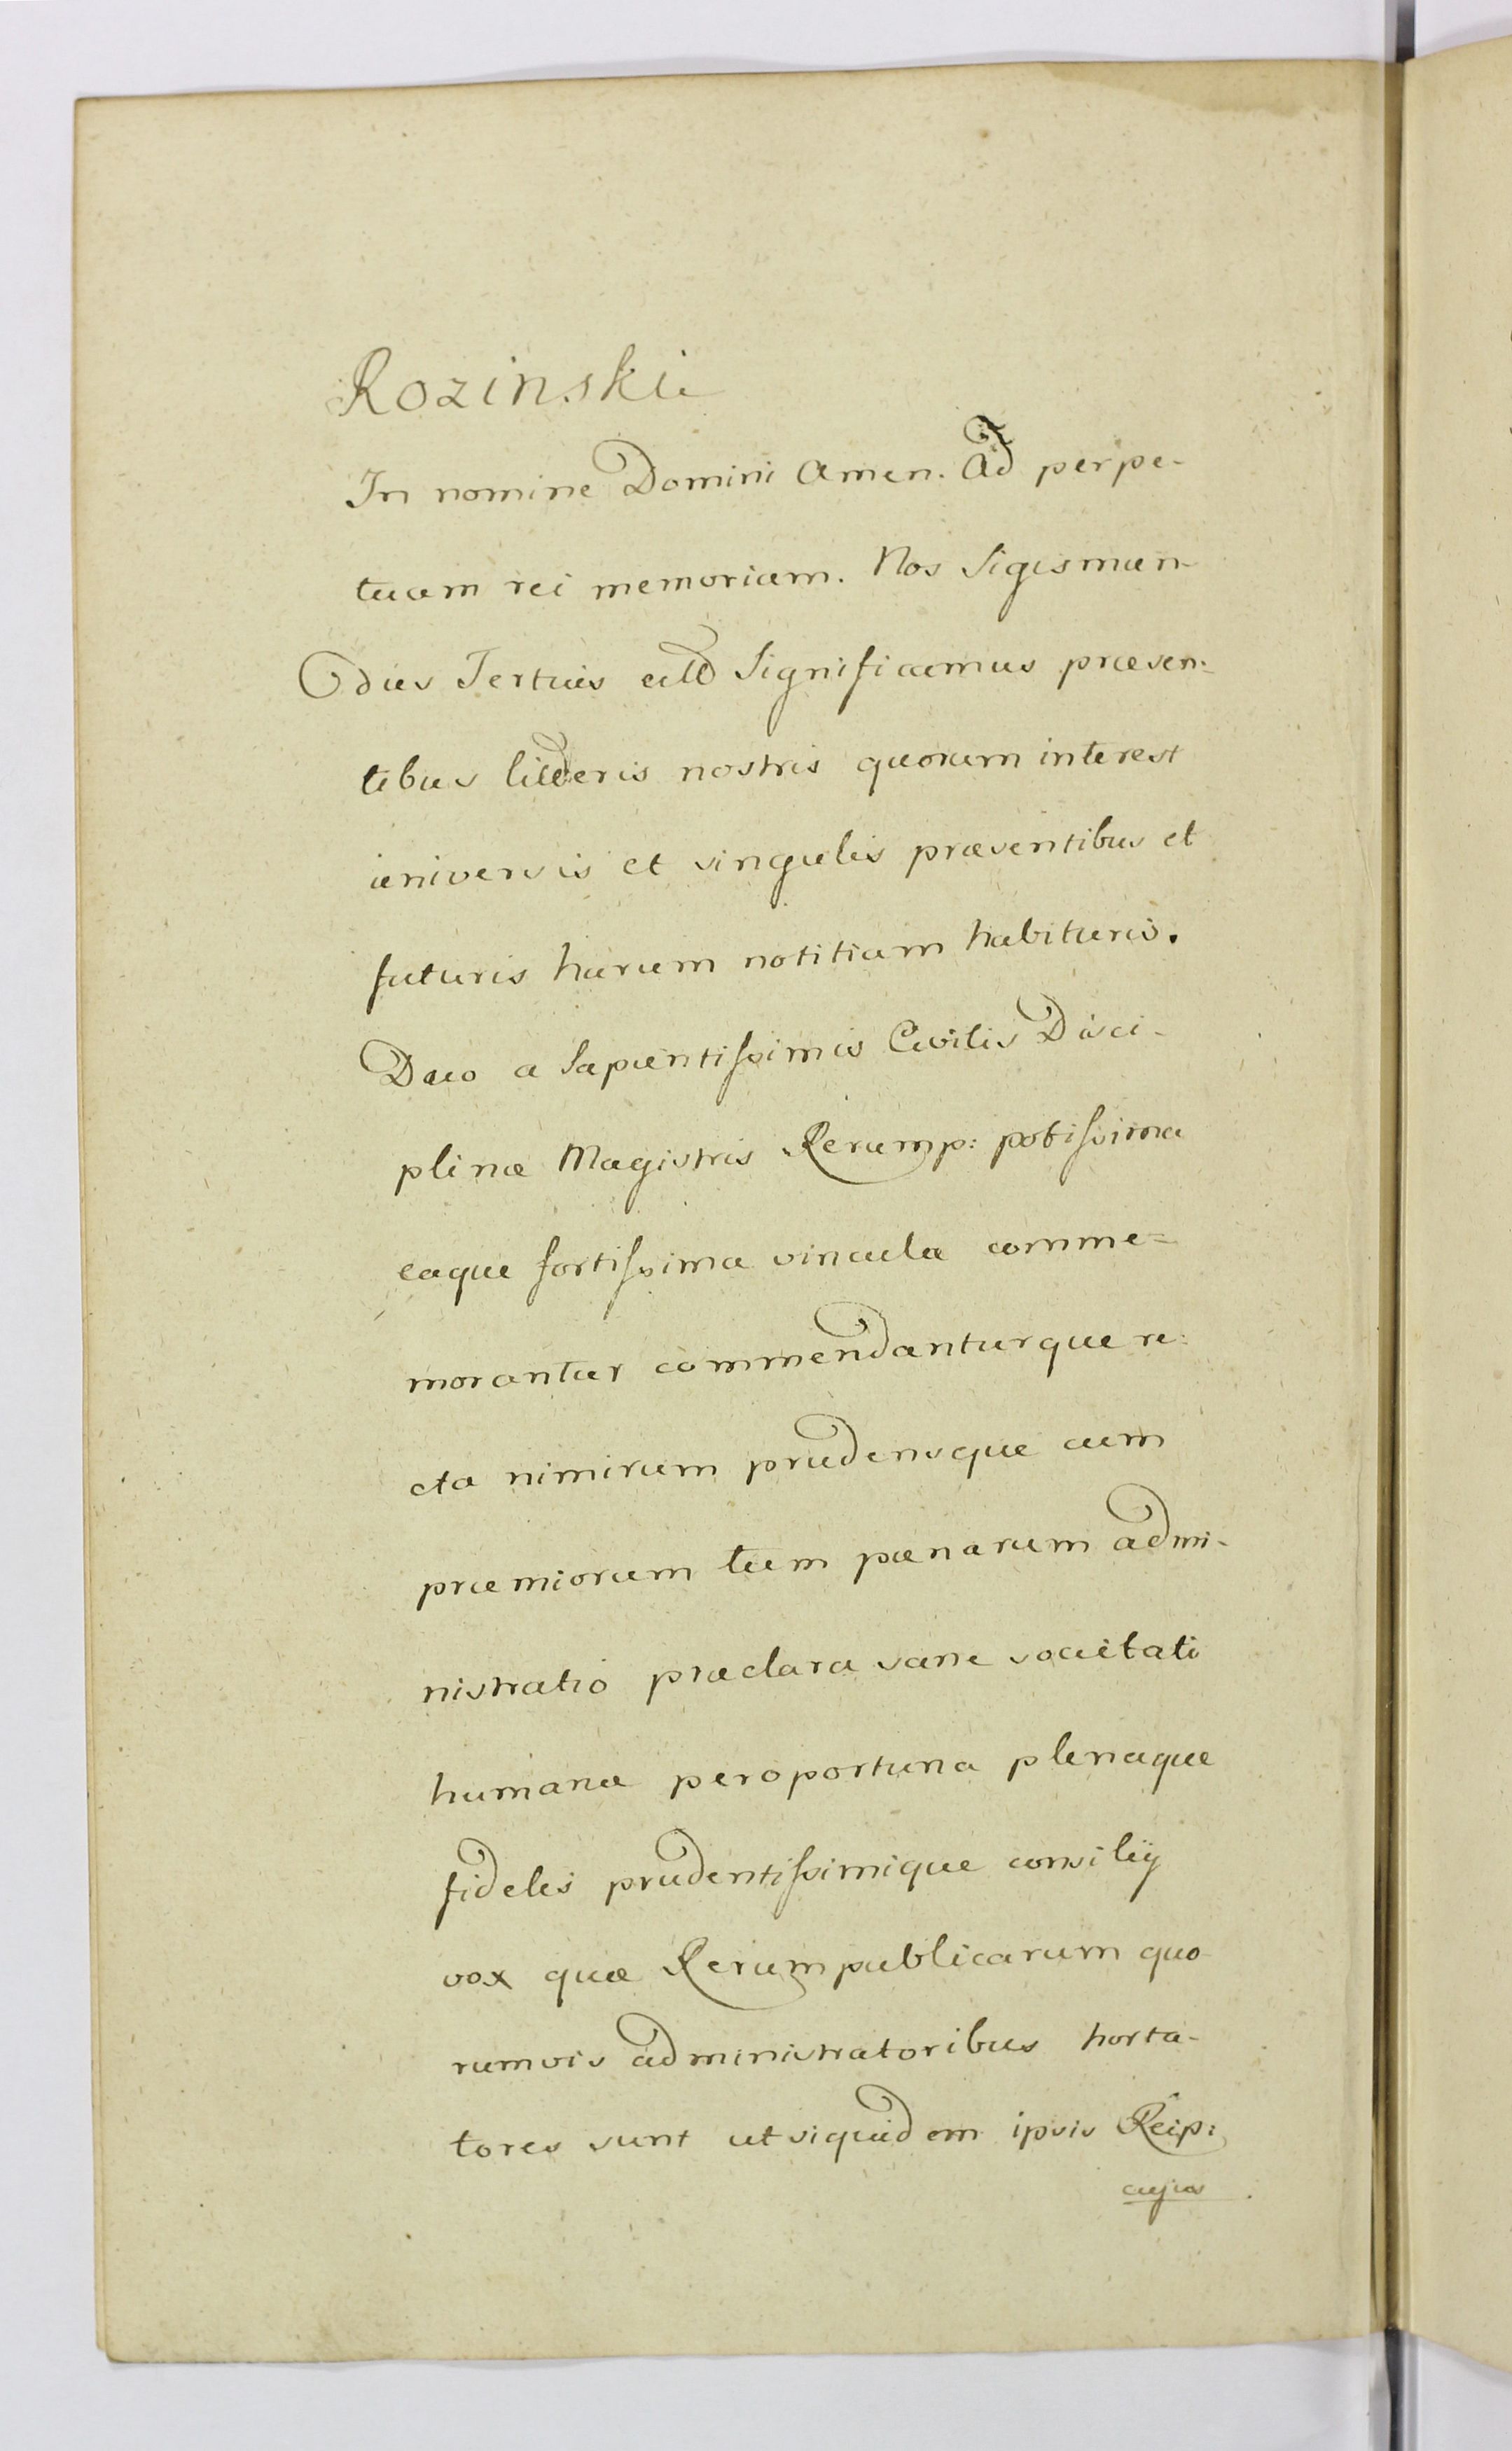 Rozinski
In nomine Domini Amen. Ad perpe-
tuam rei memoriam. Nos Sigismun-
dus Tertius etc Significamus præsen-
tibus litteris nostris quorum interest
universis et singulis præsentibus et
futuris harum notitiam habituris.
Duo a Sapientissimis Civilis Disci-
plinæ Magistris Rerump: potissima
eaque fortissima vincula comme=
morantur commendanturque re:
cta nimirum prudensque cum
præmiorum tum pænarum admi-
nistratio præclara sane societati
humanæ peroportuna plenaque
fidelis prudentissimique consilÿ
vox quæ Rerumpublicarum quo
rumvis administratoribus horta-
tores sunt ut siquidem ipsis Reip:
cujus